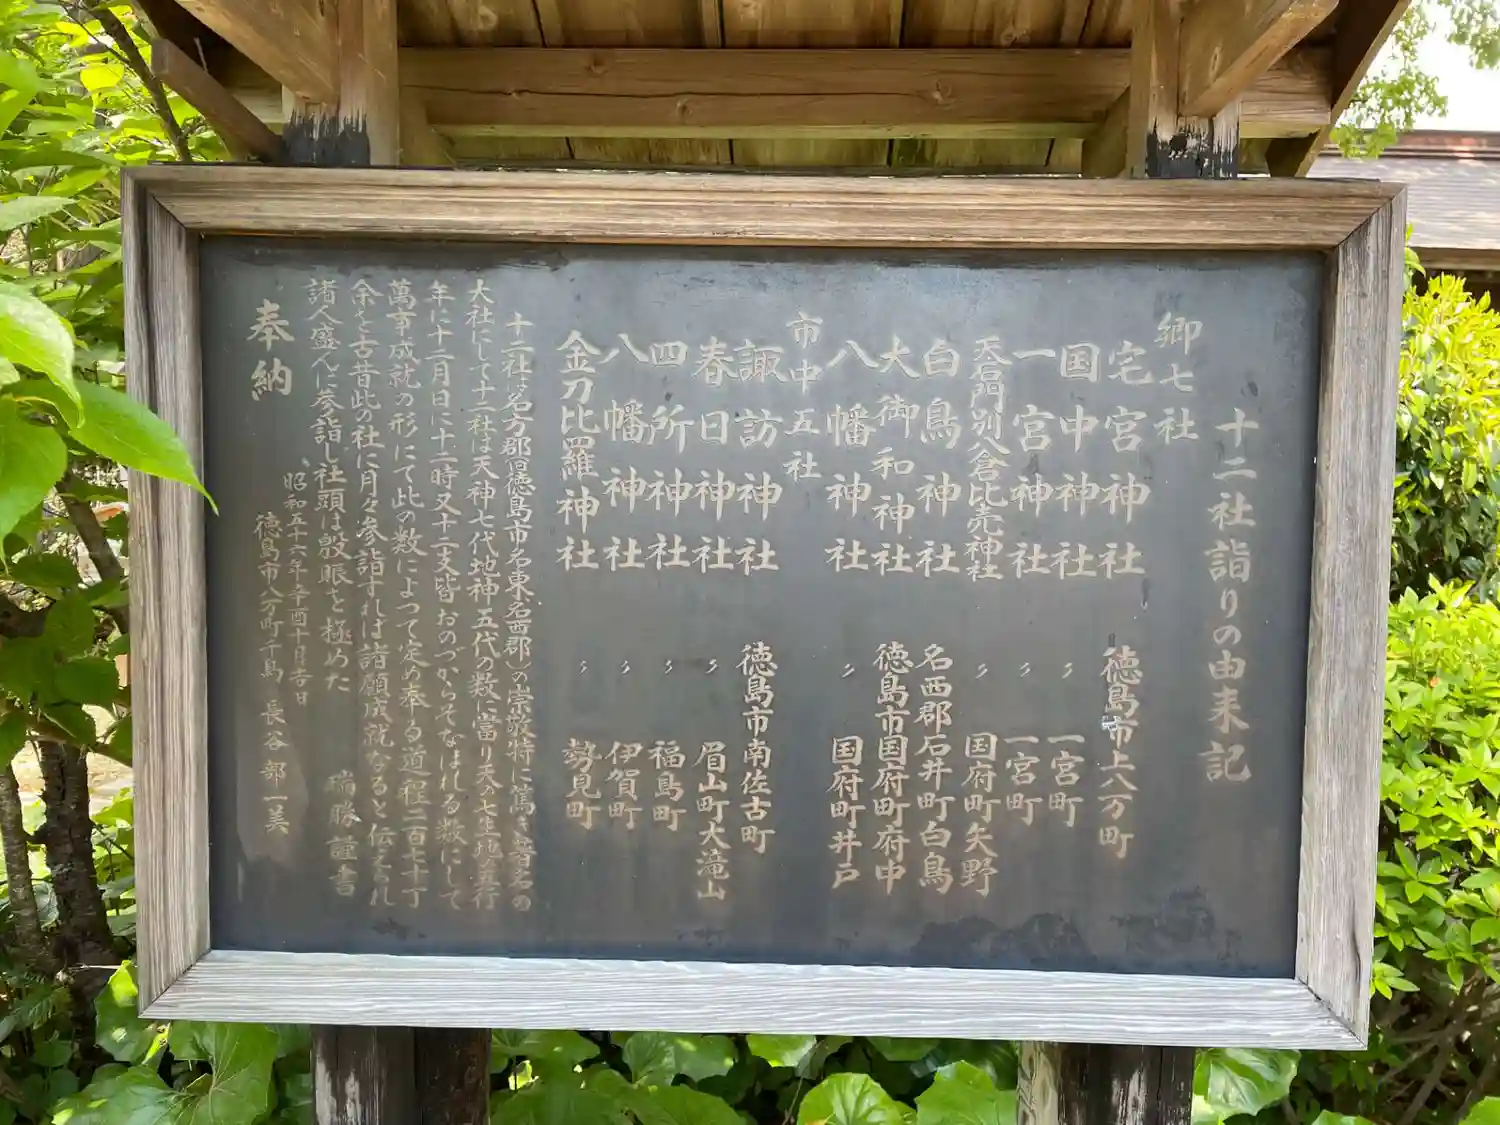 十二社詣りの由来記
郷七社
宅宮神社 徳島市上八万町
国中神社 〃 一宮町
一宮神社 〃 一宮町
天石門別八倉比売神社 〃 国府町矢野
白鳥神社 名西郡石井町白鳥
大御和神社 徳島市国府町府中
八幡神社 〃 国府町井戸
市中五社
諏訪神社 徳島市南佐古町
春日神社 〃 眉山町大滝山
四所神社 〃 福島町
八幡神社 〃 伊賀町
金刀比羅神社 〃 勢見町
十二社は名方郡(旧徳島市名東名西郡)の崇敬特に篤き著名の
大社にして十二社は天神七代地神五代の数に當り天の七生地の五行
年に十二月日に十二時又十二支皆おのづからそなはれる数にして
萬事成就の形にて此の数によつて定め奉る道程二百七十丁
余を古昔此の社に月々参詣すれば諸願成就なると伝えられ
諸人盛んに参詣し社頭は殷賑を極めた 瑞勝謹書
昭和五十六年辛酉十月吉日
奉納 徳島市八万町千鳥 長谷部一美